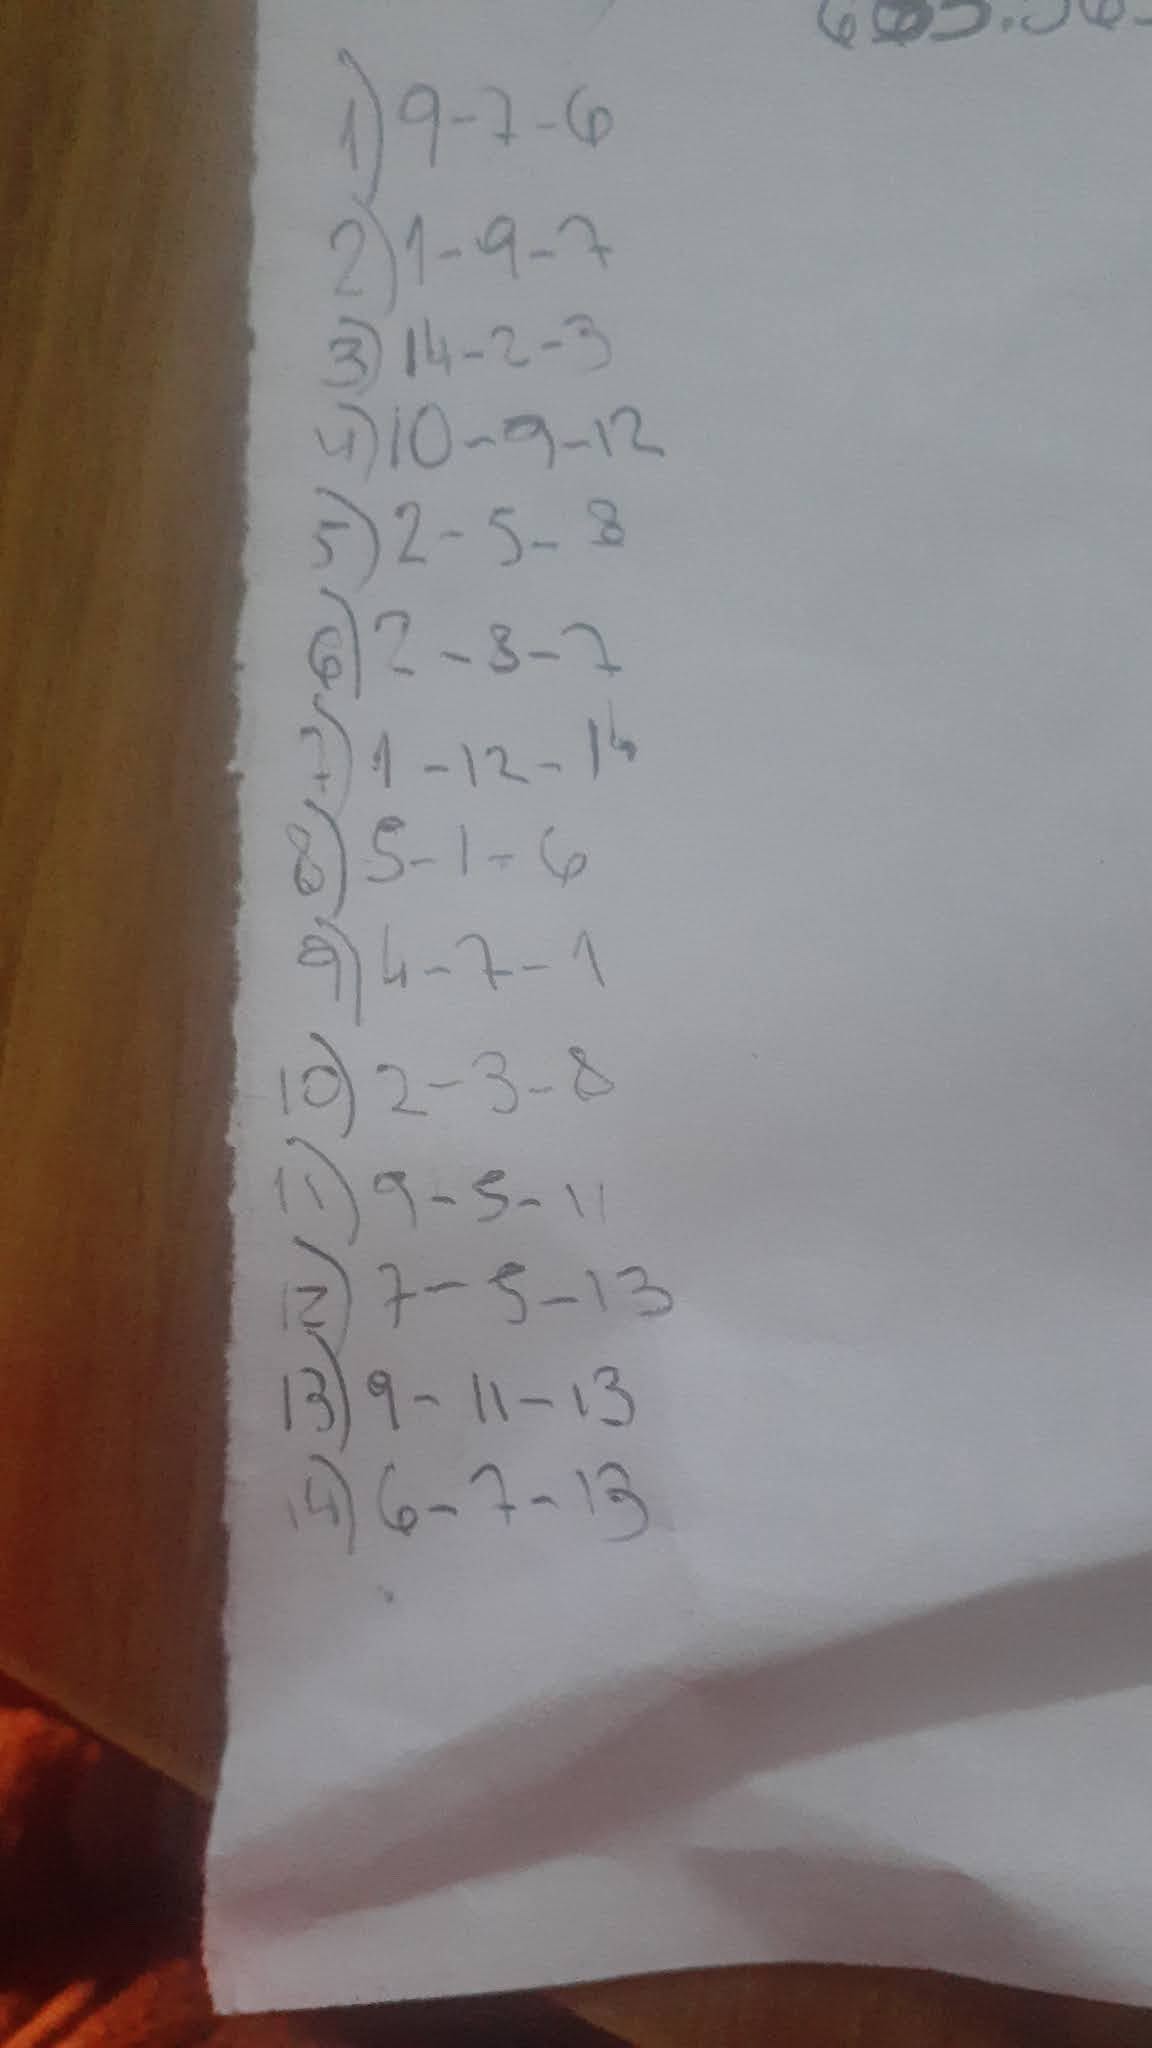 1) 9-7-6
2) 1-9-7
3) 14-2-3
4) 10-9-12
5) 2-5-8
6) 2-8-7
7) 1-12-14
8) 5-1-6
9) 4-7-1
10) 2-3-8
11) 9-5-11
12) 7-5-13
13) 9-11-13
14) 6-7-13